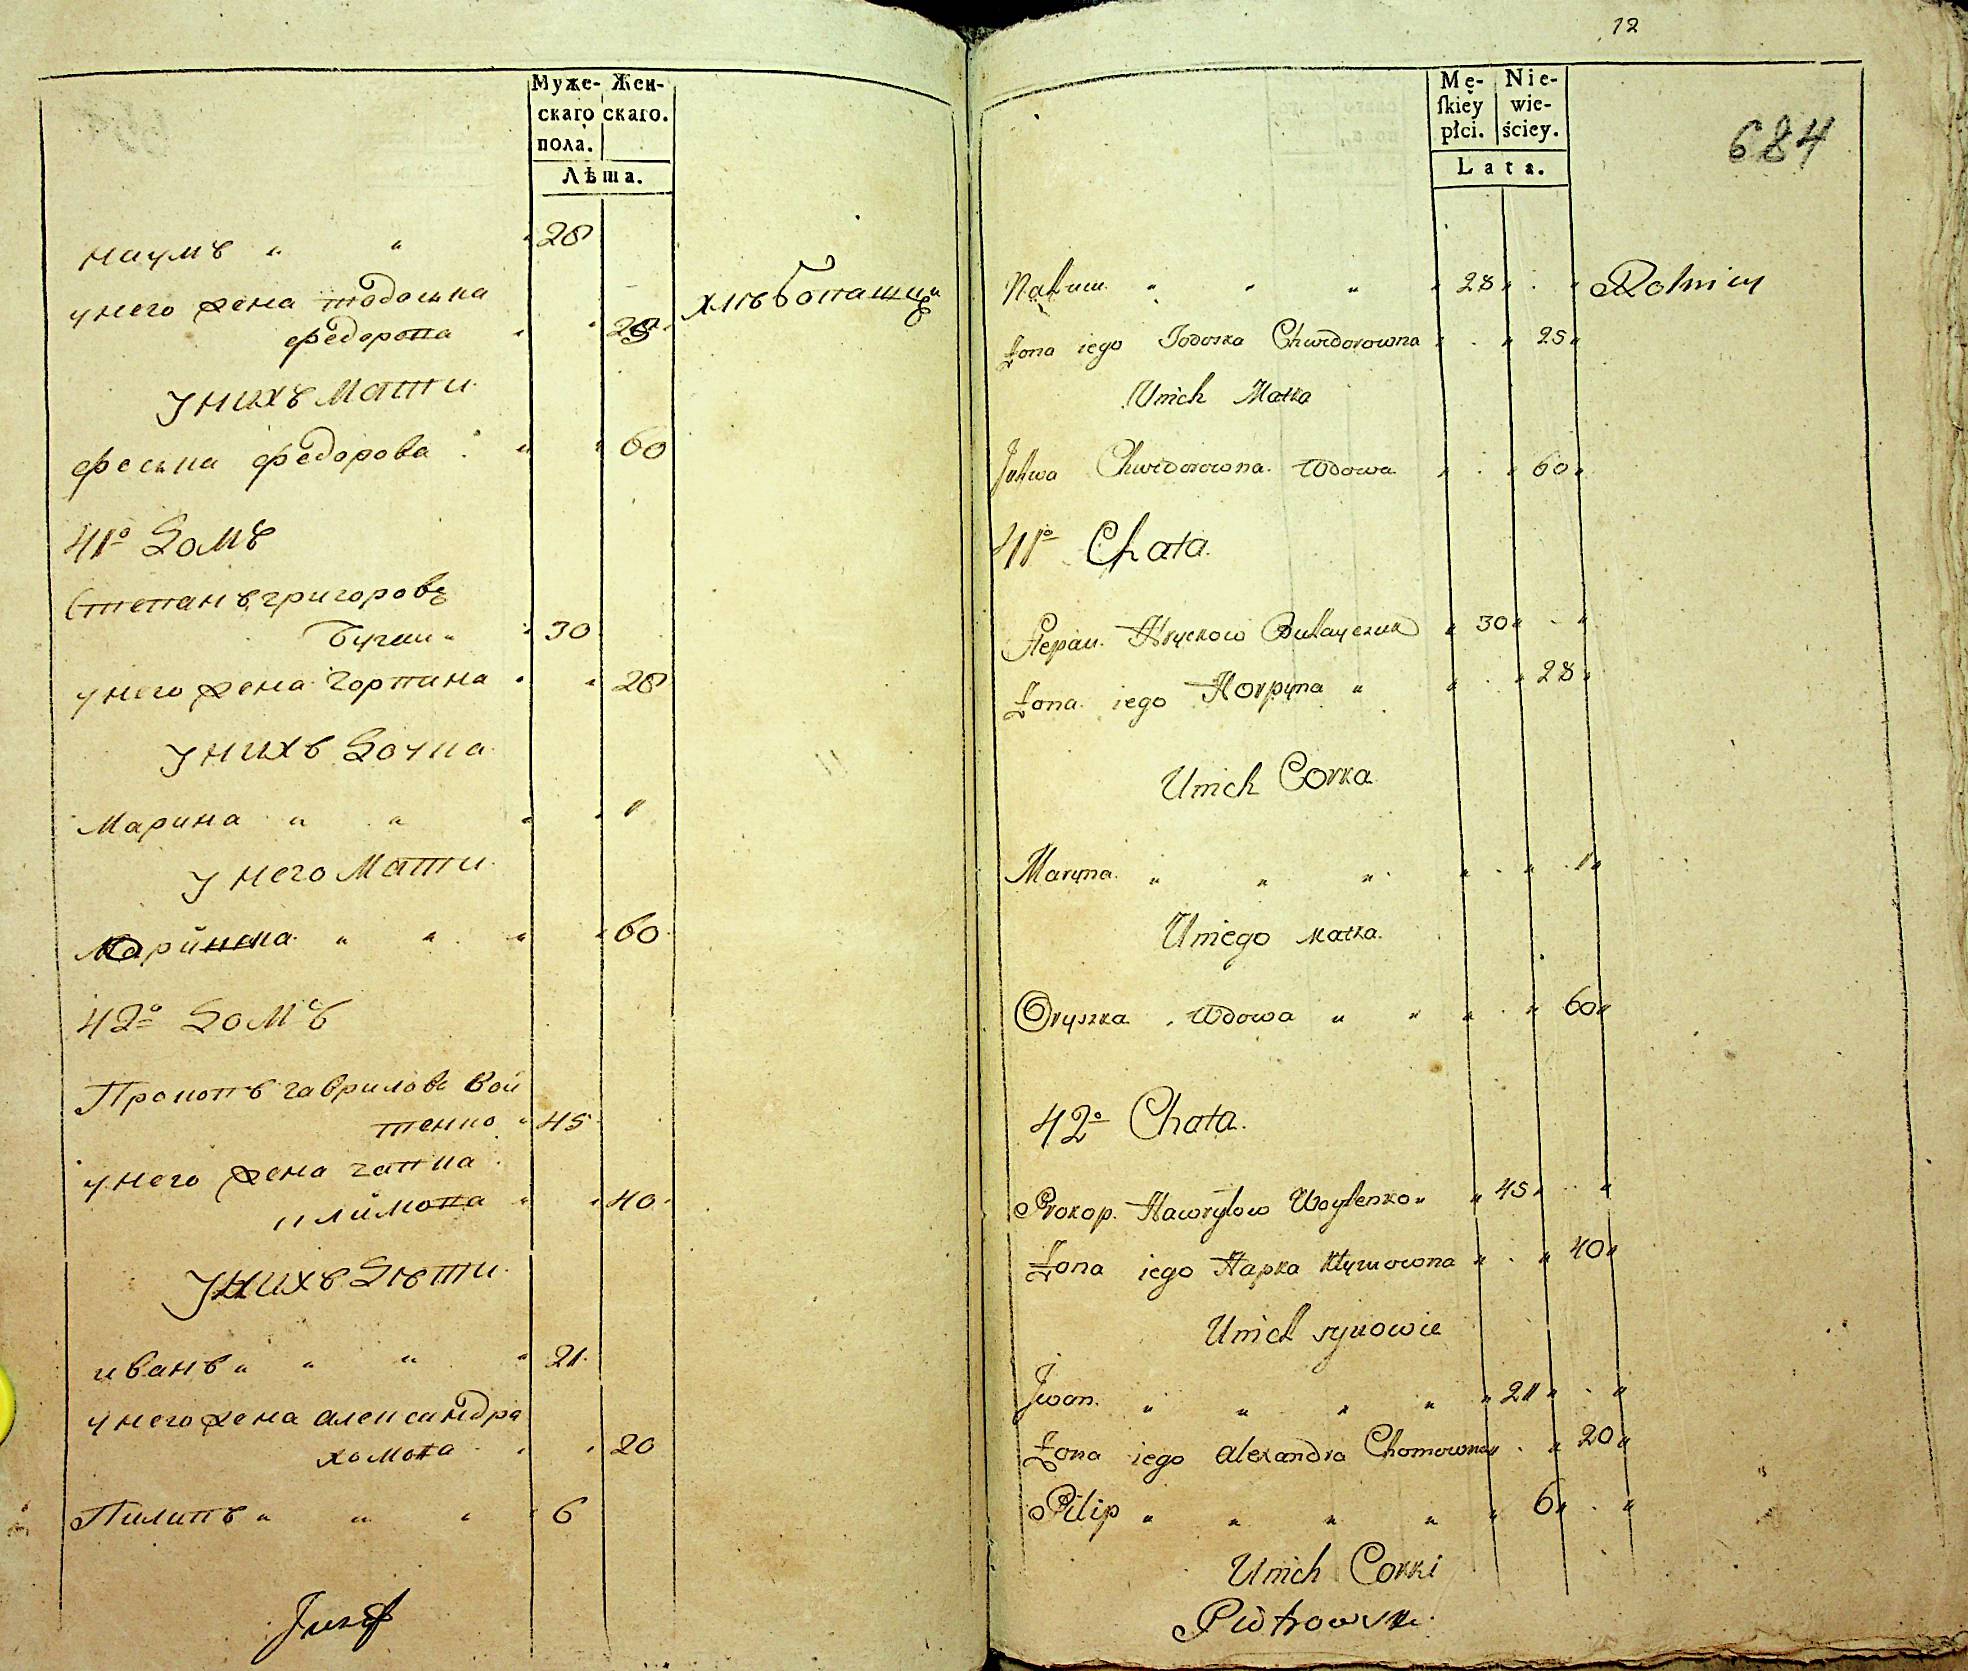 Муже- Жен-
скаго скаго.
пола.
Лѣта.
наумъ " " " 28
у него жена тодоська
федорова " " 25
хлѣбопашцы
У нихъ Мати
феська федорова " " 60
41º Домъ
Степанъ григоровъ
" 30
у него жена горпина " " 28
У нихъ Дочка
Марина " " " " 1
У него Мати
" " " " 60
42º Домъ
Прокопъ гавриловъ Вой
тенко " 45
у него жена гапка
климова " " 40
У нихъ Дѣти
иванъ " " " " 21
у него жена александра
хомова " " 20
Пилипъ " " " " 6
Jozef
12
684
Mę- Nie-
ſkiey wie-
płci. ściey.
Lata.
Nahum " " " " 28 " . " Rolnicy
Żona iego Todoska Chwedorowna " . " 25 "
Unich Matka
Chwedorowna Wdowa " . " 60 "
41º Chata.
Stepan Hryckow " 30 " . "
Żona iego Horpyna " " . " 28 "
Unich Corka
Maryna " " " " . " 1 "
Uniego Matka.
Oryszka Wdowa " " " . " 60 "
42º Chata.
Prokop Hawryłow Woytenko " " 45 " . "
Żona iego Hapka Kłymowna " . " 40 "
Unich synowie
Jwan " " " " " 21 " . "
Żona iego Alexandra Chomowna " . " 20 "
Pilip " " " " " 6 " . "
Unich Corki
Piotrowski